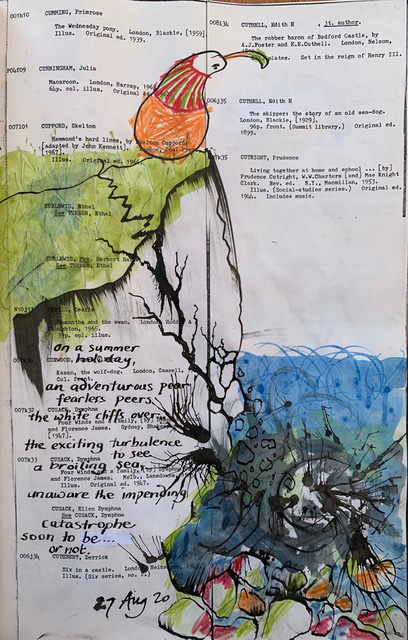 001h10 CUMMING, Primrose
The Wednesday pony. London, Blackie, [1959].
Illus. Original ed. 1939.
CUNNINGHAM, Julia
Macaroon. London, Harrap, 196
64p. col. illus. Original ed.
007101 CUFFORD, Skelton
Hammond's hard lines, by
[adapted by John Kennett].
Illus. Original ed. 196
CURLEWIS, Ethel
See TURNER, Ethel
CURLEWIS, Mrs. Herbert
See TURNER, Ethel
Samantha and the swan. London, Hodder &
Stoughton, 1965.
37p. col. illus.
on a summer
holiday,
Kazan, the wolf-dog. London, Cassell,
Col. front.
an adventurous pear
fearlers peers
007k32 CUSACK, Dymphna
the white cliffs over
Four Winds and a family, [by]
and Florence James. Sydney,
[1947].
the exciting turbulence
to see
007k33 CUSACK, Dymphna
a broiling sea,
Four Winds and a family, [by] Dymphna
and Florence James. Melb., Lansdowne,
Illus. Original ed. 1947.
unaware the impending
CUSACK, Ellen Dymphna
See CUSACK, Dymphna
catastrophe
soon to be...
or not.
006j34 CUTHBERT, Derrick
Six in a castle. London,
Illus. (Six series, no. 2.)
27 Aug 20
008134 CUTHELL, Edith E , jt. author.
The robber baron of Bedford Castle, by
A.J.Foster and E.E.Cuthell. London, Nelson,
Set in the reign of Henry III.
006j35 CUTHELL, Edith E
The skipper: the story of an old sea-dog.
London, Blackie, [1929].
96p. front. (Summit library.) Original ed.
1899.
CUTRIGHT, Prudence
Living together at home and school ... [by]
Prudence Cutright, W.W.Charters [and] Mae Knight
Clark. Rev. ed. N.Y., Macmillan, 1953.
Illus. (Social-studies series.) Original ed.
1944. Includes music.